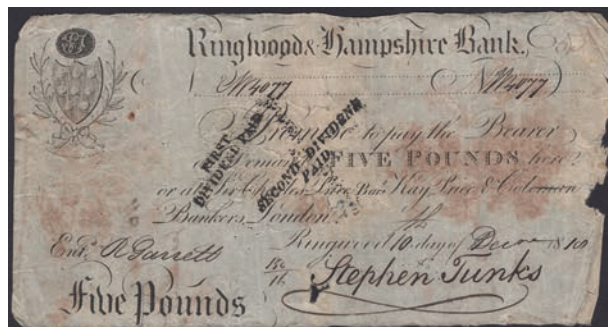 Ringwood & Hampshire Bank.
No. 4077 No. 4077
I Promise to pay the Bearer
on Demand FIVE POUNDS here
or at Sir Chas. Price Bart. Kay, Price & Coleman
Bankers London
FIRST DIVIDEND PAID
SECOND DIVIDEND PAID
Ringwood 10 day of Decr 1810
Entd. R Garrett
Stephen Tunks
Five Pounds